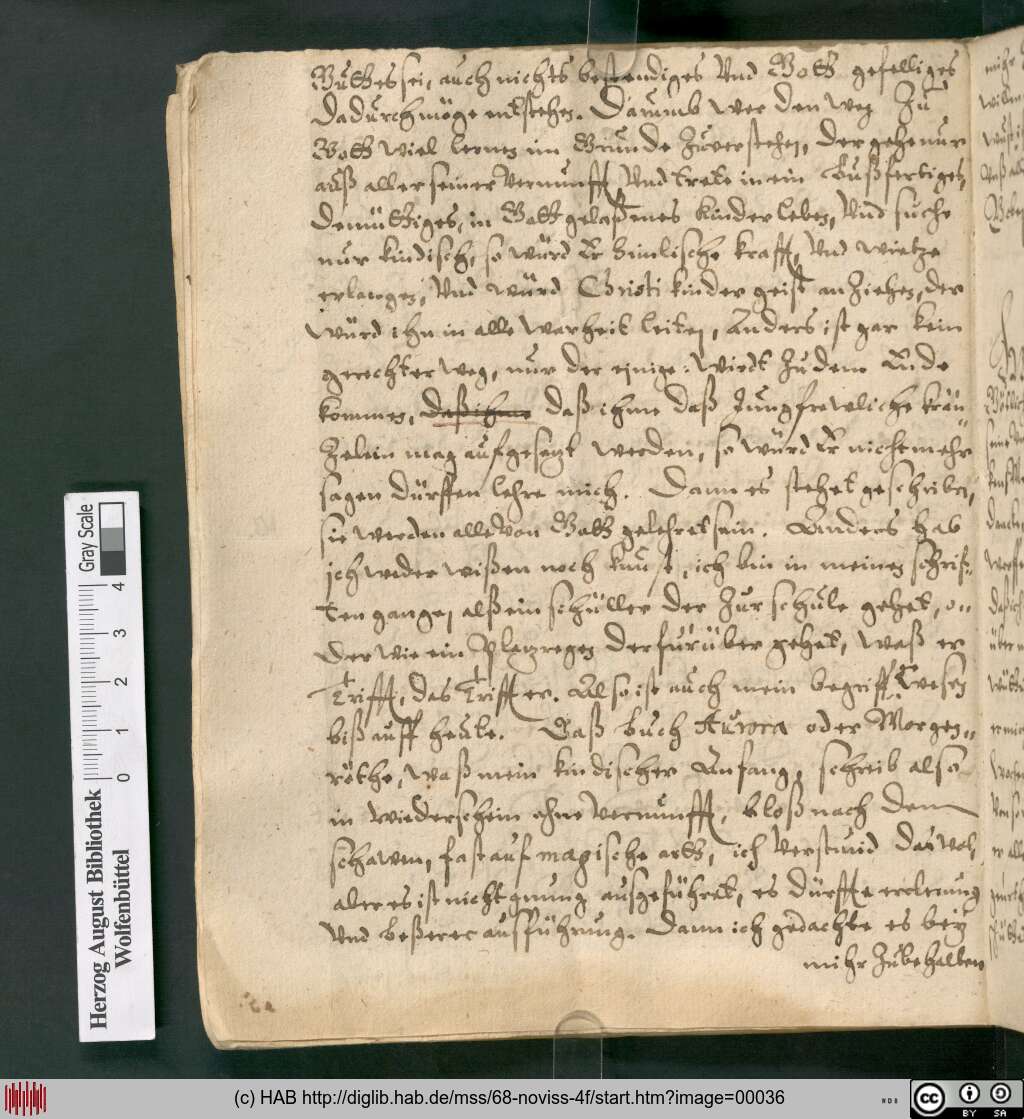 Guttes sei, auch nichts bestendiges Vnd Gott gefelliges
dadurch möge entstehen. Darumb wer den weg Zu
Gott wiel lernen im Grunde Zuverstehen, der gehe nur
auß aller seiner Vernunfft, Vnd trete in ein Bußfertiges,
demüttiges, in Gott gelaßenes kinder leben, Vnd suche
nur kindisch, so würd Er himlische krafft, Vnd wietze
erlangen, Vnd würd Christi kinder geist anZiehen, der
würd ihn in alle warheit leiten, Anders ist gar kein
gerechter weg, nur der einige: Wirdt Zu dem Ende
kommen, daß ihme daß ihme daß Jungfrewliche krän
Zelein mag auffgesezt werden, so würd Er nicht mehr
sagen dürffen lehre mich. Dann es stehet geschriben,
sie werden alle von Gott gelehret sein. Anders hab
jch weder wißen noch kunst, ich bin in meinen schrif-
ten gangen alß ein schüller der Zur schule gehet, o=
der wie ein Plazregen der fürüber gehet, waß er
Trifft, das Trifft er. Also ist auch mein begriff gewesen
biß auff heute. Daß buch Aurora oder Morgen=
röthe, waß mein kindischer Anfang, schreib also
in wiederschein ohne Vernunfft, bloß nach dem
schawen, fast auf magische artt, ich Verstund das wol,
aber es ist nicht gnung ausgeführet, es dürffte erclerung
Vnd beßerer ausführung. Dann ich gedachte es bey
mihr Zubehalten
Gray Scale
4
3
2
1
0
Herzog August Bibliothek
Wolfenbüttel
(c) HAB http://diglib.hab.de/mss/68-noviss-4f/start.htm?image=00036
HAB
cc BY SA